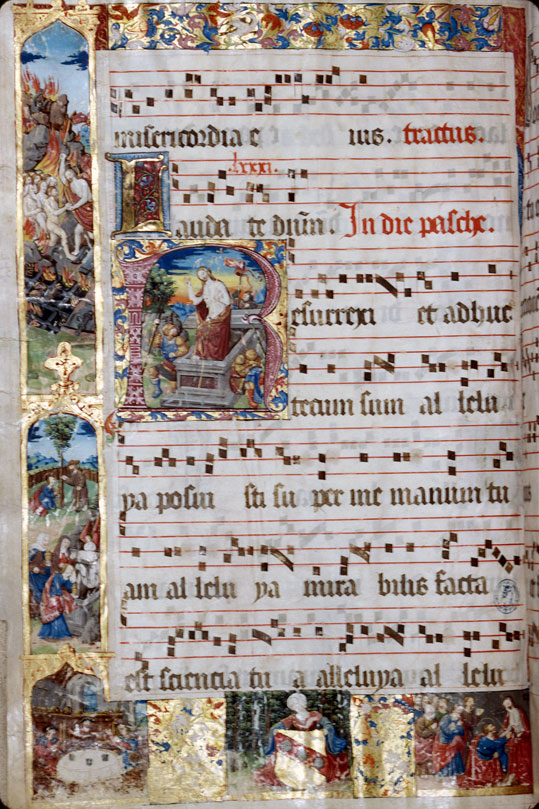 misericordia e ius. tractus.
lxxxi.
Lauda te dñm. In die pasche.
Resurrexi et adhuc
tecum sum al lelu
ya posui sti su per me manum tu
am al lelu ya mira bilis facta
est sciencia tu a alleluya al lelu